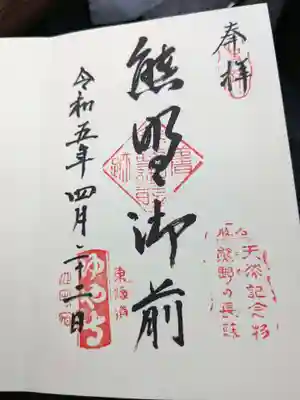 奉拝
天然記念物
熊野の長藤
熊野御前
旧跡
東海道
令和五年四月二十二日